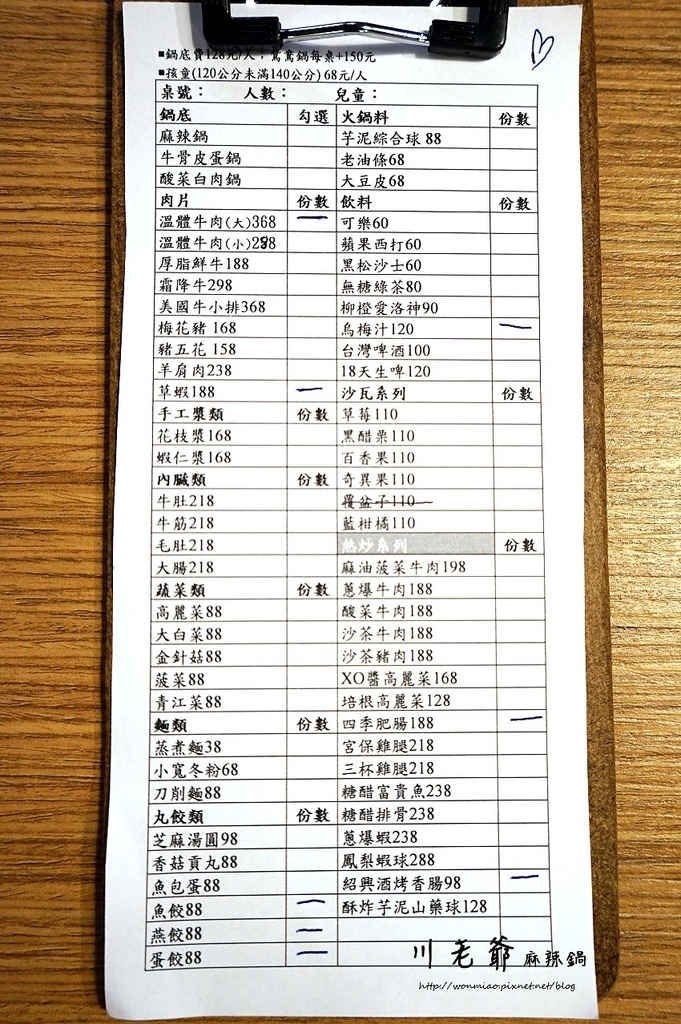 ■鍋底費128元/人；鴛鴦鍋每桌+150元
■孩童(120公分未滿140公分) 68元/人
桌號： 人數： 兒童：
鍋底 勾選 火鍋料 份數
麻辣鍋 芋泥綜合球 88
牛骨皮蛋鍋 老油條68
酸菜白肉鍋 大豆皮68
肉片 份數 飲料 份數
溫體牛肉(大)368 可樂60
溫體牛肉(小)298 蘋果西打60
厚脂鮮牛188 黑松沙士60
霜降牛298 無糖綠茶80
美國牛小排368 柳橙愛洛神90
梅花豬 168 烏梅汁120
豬五花 158 台灣啤酒100
羊肩肉238 18天生啤120
草蝦188 沙瓦系列 份數
手工漿類 份數 草莓110
花枝漿168 黑醋栗110
蝦仁漿168 百香果110
內臟類 份數 奇異果110
牛肚218 覆盆子110
牛筋218 藍柑橘110
毛肚218 熱炒系列 份數
大腸218 麻油菠菜牛肉198
蔬菜類 份數 蔥爆牛肉188
高麗菜88 酸菜牛肉188
大白菜88 沙茶牛肉188
金針菇88 沙茶豬肉188
菠菜88 XO醬高麗菜168
青江菜88 培根高麗菜128
麵類 份數 四季肥腸188
蒸煮麵38 宮保雞腿218
小寬冬粉68 三杯雞腿218
刀削麵88 糖醋富貴魚238
丸餃類 份數 糖醋排骨238
芝麻湯圓98 蔥爆蝦238
香菇貢丸88 鳳梨蝦球288
魚包蛋88 紹興酒烤香腸98
魚餃88 酥炸芋泥山藥球128
燕餃88
蛋餃88
川老爺 麻辣鍋
http://wonmiao.pixnet.net/blog